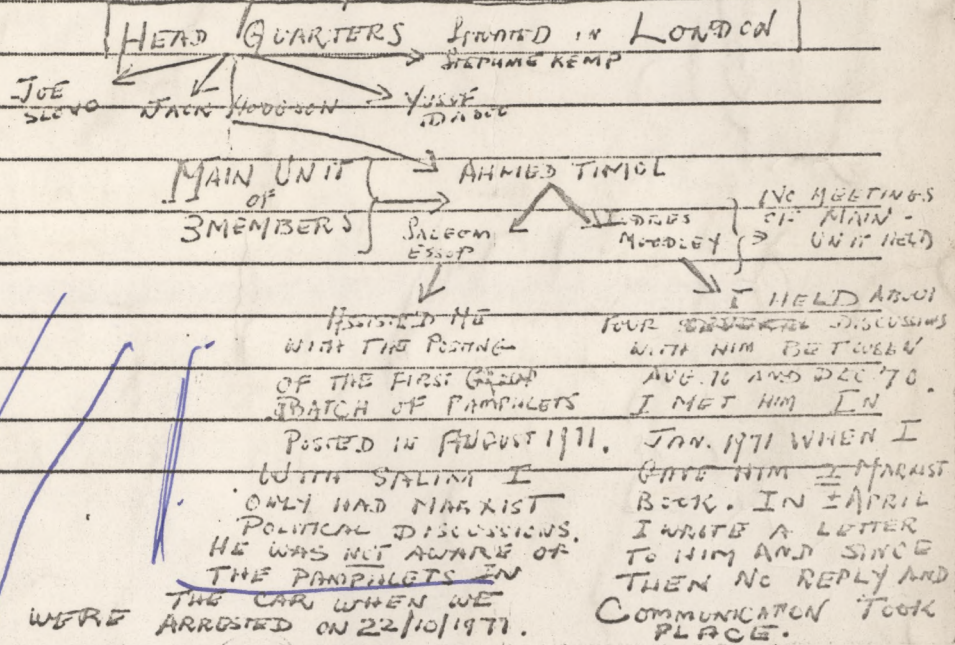 HEAD QUARTERS SITUATED IN LONDON
STEPHNIE KEMP
JOE
SLOVO
JACK HODGSON
YUSUF
DADOO
MAIN UNIT
OF
3 MEMBERS
AHMED TIMOL
SALEEM
ESSOP
INDRES
MOODLEY
NO MEETINGS
OF MAIN -
UNIT HELD
ASSISTED ME
WITH THE POSTING
OF THE FIRST
BATCH OF PAMPHLETS
POSTED IN AUGUST 1971.
WITH SALIM I
ONLY HAD MARXIST
POLITICAL DISCUSSIONS.
HE WAS NOT AWARE OF
THE PAMPHLETS IN
THE CAR WHEN WE
WERE ARRESTED ON 22/10/1971.
I HELD ABOUT
FOUR DISCUSSIONS
WITH HIM BETWEEN
AUG. 70 AND DEC '70.
I MET HIM IN
JAN. 1971 WHEN I
GAVE HIM I MARXIST
BOOK. IN ± APRIL
I WROTE A LETTER
TO HIM AND SINCE
THEN NO REPLY AND
COMMUNICATON TOOK
PLACE.